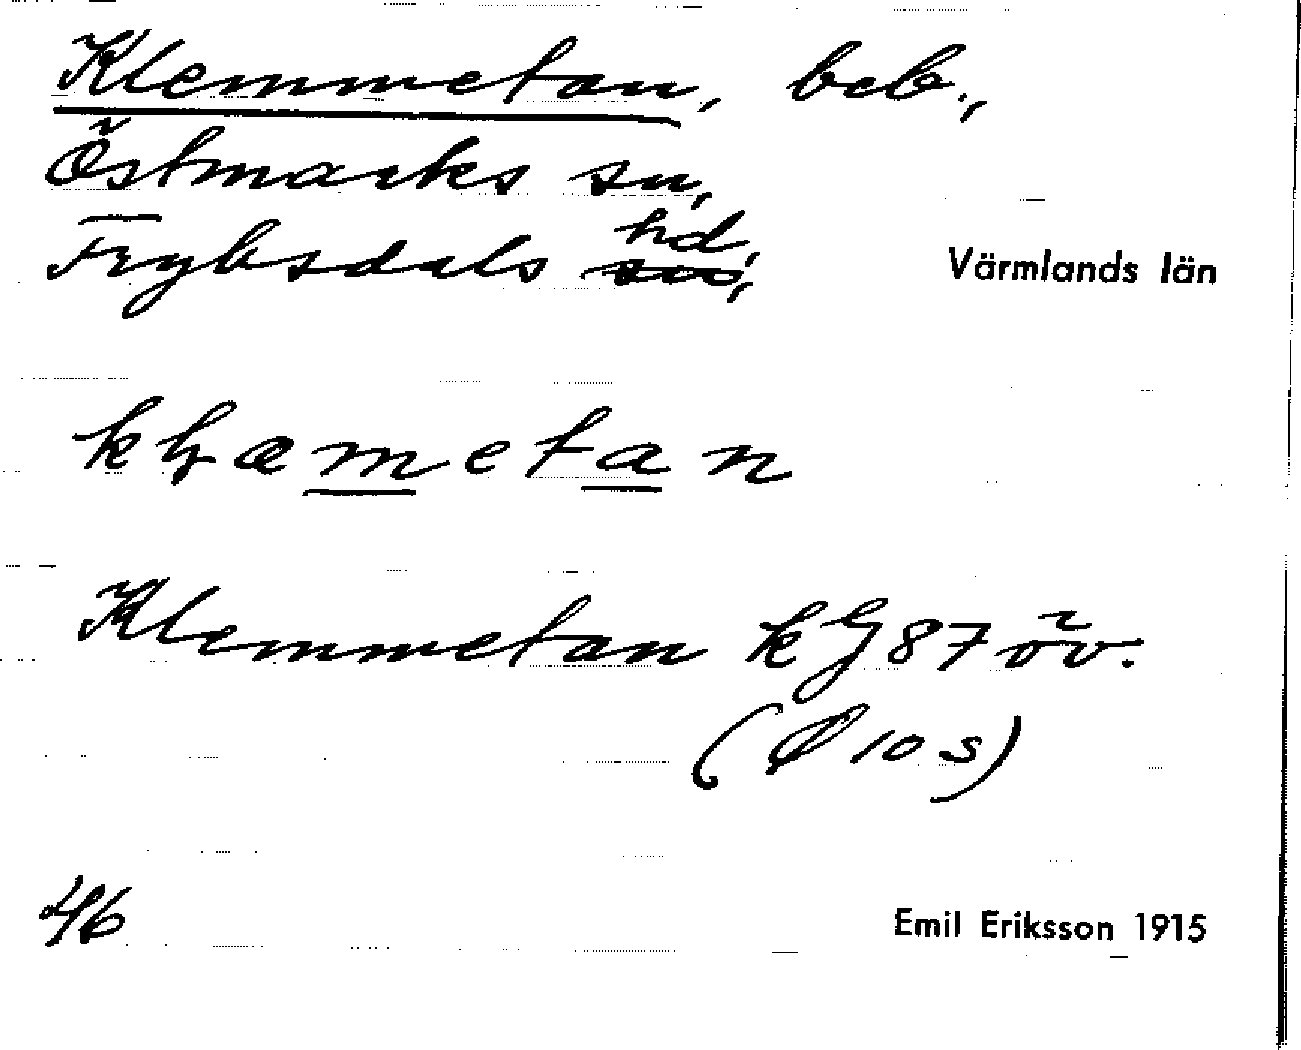 Klemmetan, beb.,
Östmarks sn,
Fryksdals hd,
Värmlands län
kḷæmetan
Klemmetan kG 87 öv.
(Ø 10 s)
46
Emil Eriksson 1915